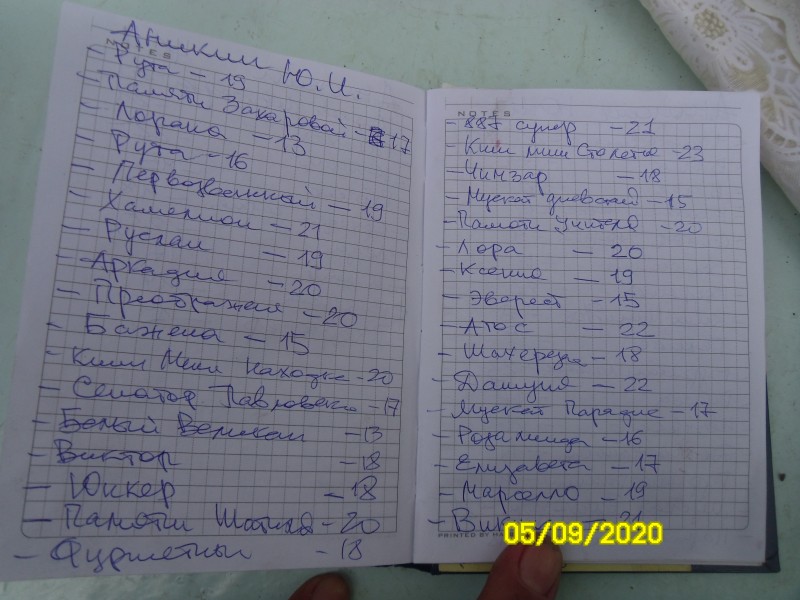 NOTES
Аникин Ю.И.
- Рута - 19
- Памяти Захаровой - 17
- Лорано - 13
- Рута - 16
- Первозванный - 19
- Хамелион - 21
- Руслан - 19
- Аркадия - 20
- Преображения - 20
- Бажена - 15
- Киш Миш Находка - 20
- Сенатор Павловски - 17
- Белый Великан - 13
- Виктор - 18
- Юккер - 18
- Памяти Шатила - 20
- Фуршетный - 18
NOTES
- 887 супер - 21
- Киш миш Столетие - 23
- Чимзар - 18
- Мускат дневской - 15
- Памяти учителя - 20
- Лора - 20
- Ксения - 19
- Эверест - 15
- Атос - 22
- Шахерезада - 18
- Дашуня - 22
- Мускат Парадис - 17
- Розалинда - 16
- Елизавета - 17
- Марселло - 19
- Вик - 21
PRINTED BY
05/09/2020